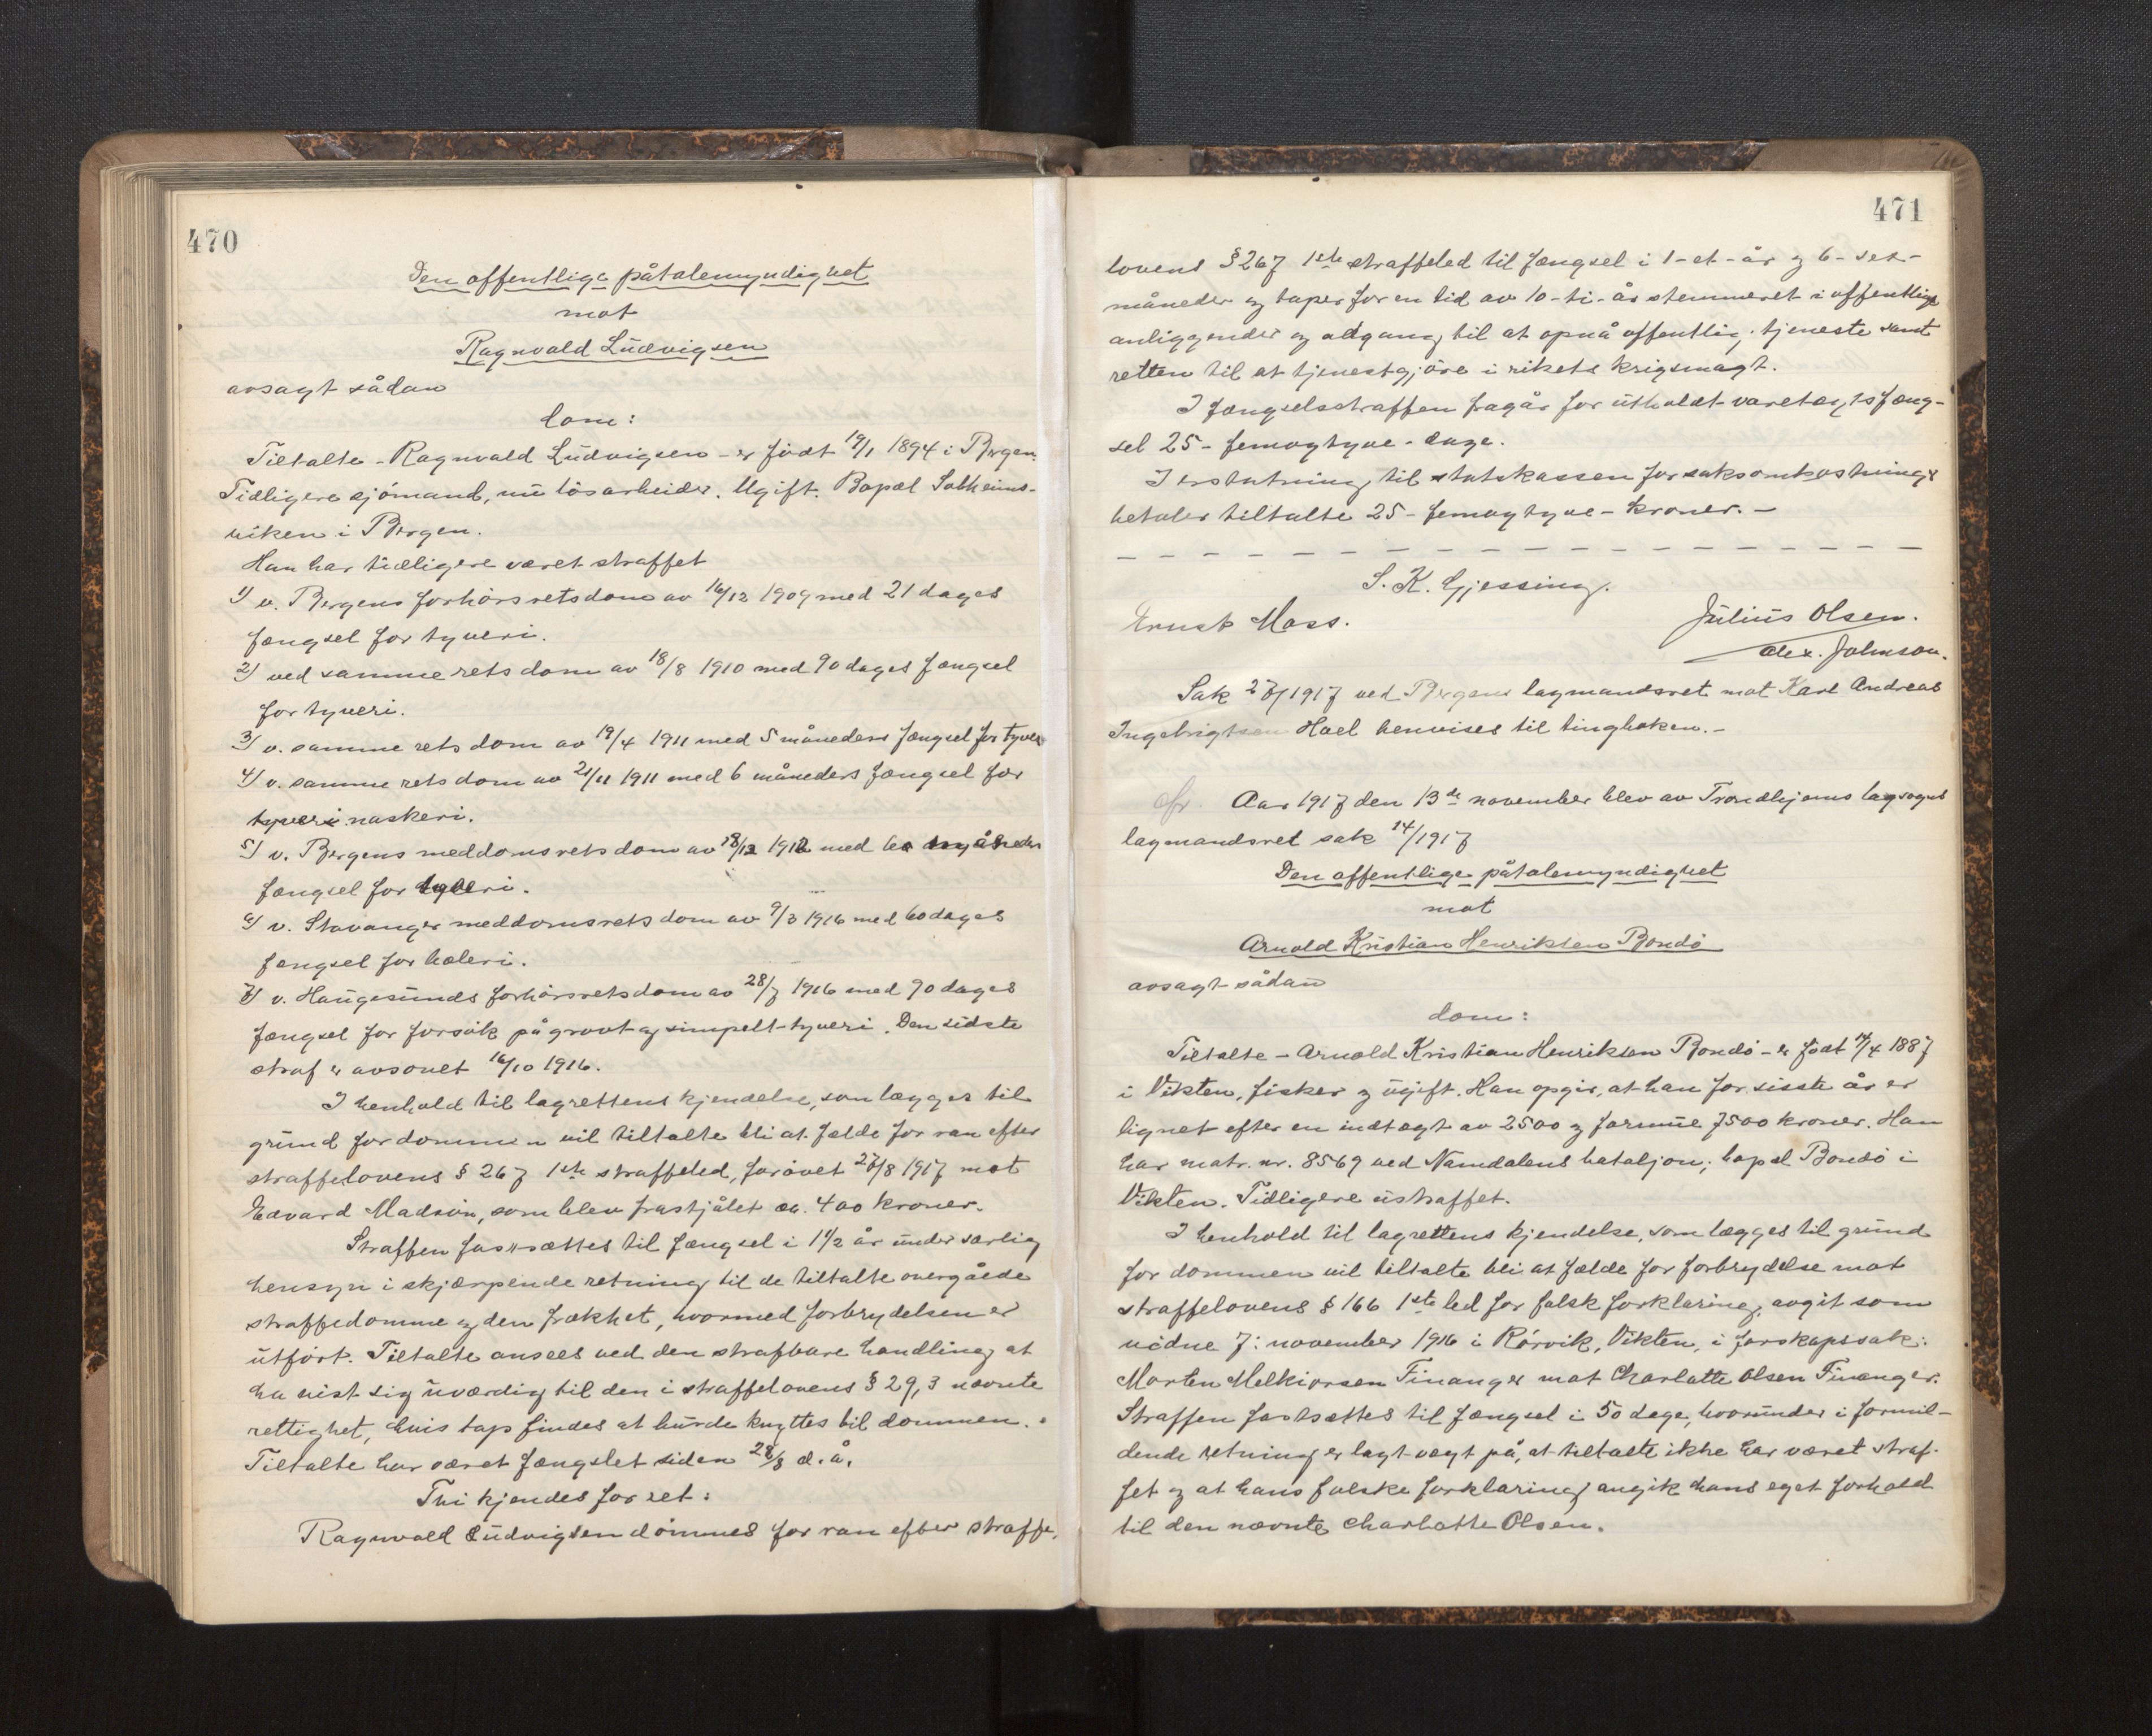 470
Den offentlige påtalemyndighet
mot
Ragnvald Ludvigsen
avsagt sådan
dom:
Tiltalte - Ragnvald Ludvigsen - er født 19/1 1894 i Bergen.
Tidligere sjømand, nu løsarbeider. Ugift. Bopæl Solheims-
viken i Bergen.
Han har tidligere været straffet
1) v. Bergens forhørsretsdom av 16/12 1909 med 21 dages
fængsel for tyveri.
2) ved samme rets dom av 18/8 1910 med 90 dages fængsel
for tyveri.
3) v. samme rets dom av 19/4 1911 med 5 måneders fængsel for tyveri
4) v. samme rets dom av 21/11 1911 med 6 måneders fængsel for
tyveri naskeri.
5) v. Bergens meddomsrets dom av 18/12 1912 med måneders
fængsel for tyveri.
6) v. Stavanger meddomsrets dom av 9/3 1916 med 60 dages
fængsel for hæleri.
7) v. Haugesunds forhørsretsdom av 28/7 1916 med 90 dages
fængsel for forsøk på grovt og simpelt tyveri. Den sidste
straf er avsonet 16/10 1916.
I henhold til lagrettens kjendelse, som lægges til
grund for dommen vil tiltalte bli at fælde for ran efter
straffelovens § 267 1ste straffeled, forøvet 27/8 1917 mot
Edvard Madsön, som blev frastjålet ca. 400 kroner.
Straffen fastsættes til fængsel i 1 1/2 år under særlig
hensyn i skjærpende retning til de tiltalte overgåede
straffedomme og den frækhet, hvormed forbrydelsen er
utført. Tiltalte ansees ved den strafbare handling at
ha vist sig uværdig til den i straffelovens § 29,3 nævnte
rettighet, hvis tap findes at burde knyttes til dommen.
Tiltalte har været fængslet siden 28/8 d.å.
Thi kjendes for ret:
Ragnvald Ludvigsen dømmes for ran efter straffe-
471
lovens § 267 1ste straffeled til fængsel i 1 - et - år og 6 - sex -
måneder og taper for en tid av 10 - ti - år stemmeret i offentlige
anliggender og adgang til at opnå offentlig tjeneste samt
retten til at tjenestgjøre i rikets krigsmagt.
I fængselsstraffen fragår for utholdt varetægtsfæng-
sel 25 - femogtyve - dage.
I erstatning til statskassen for saksomkostninger
betaler tiltalte 25 - femogtyve - kroner. -
S. K. Gjessing.
Ernst Moss.
Julius Olsen.
Alex. Johnson.
Sak 27/1917 ved Bergens lagmandsret mot Karl Andreas
Ingebrigtsen Hoel henvises til tingboken. -
Aar 1917 den 13de november blev av Trondhjems lagsogns
lagmandsret sak 14/1917
Den offentlige påtalemyndighet
mot
Arnold Kristian Henriksen Bondö
avsagt sådan
dom:
Tiltalte - Arnold Kristian Henriksen Bondö - er født /4 1887
i Vikten, fisker og ugift. Han opgir, at han for sisste år er
lignet efter en indtægt av 2500 og formue 7500 kroner. Han
har matr. nr. 8569 ved Namdalens bataljon; bopæl Bondö i
Vikten. Tidligere ustraffet.
I henhold til lagrettens kjendelse, som lægges til grund
for dommen vil tiltalte bli at fælde for forbrydelse mot
straffelovens § 166 1ste led for falsk forklaring, avgit som
vidne 7: november 1916 i Rörvik, Vikten, i farskapssak:
Morten Melkiorsen Finanger mot Charlotte Olsen Finanger.
Straffen fastsættes til fængsel i 50 dage, hvorunder i formil-
dende retning er lagt vægt på, at tiltalte ikke har været straf-
fet og at hans falske forklaring angik hans eget forhold
til den nævnte Charlotte Olsen.